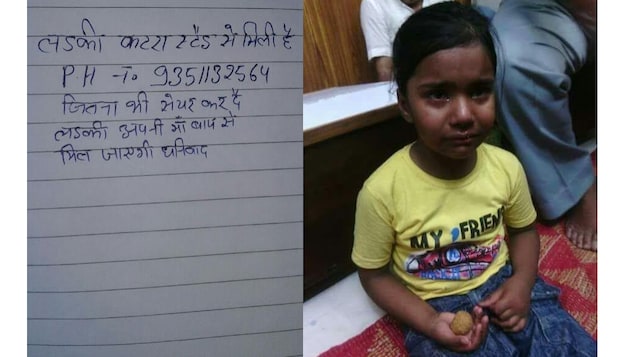 लडकी कटरा स्टैंड से मिली है
P.H No. 9351132564
जितना की सेयर कर दे
लडकी अपनी माँ बाप से
मिल जाएगी धनिवाद
MY FRIEN